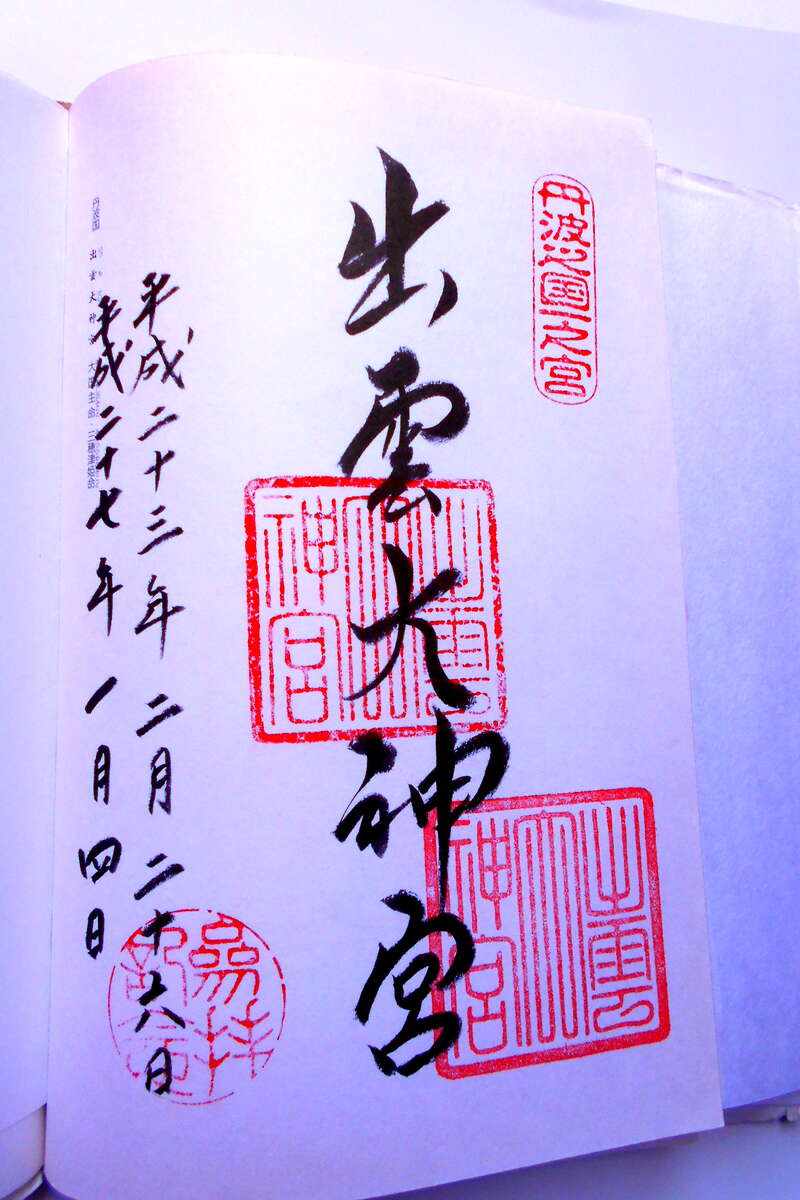 丹波之國一之宮
出雲大神宮
出雲大神宮
出雲大神宮
平成二十三年二月二十六日
平成二十七年一月四日
丹波国 出雲大神 主命・三穂津姫命